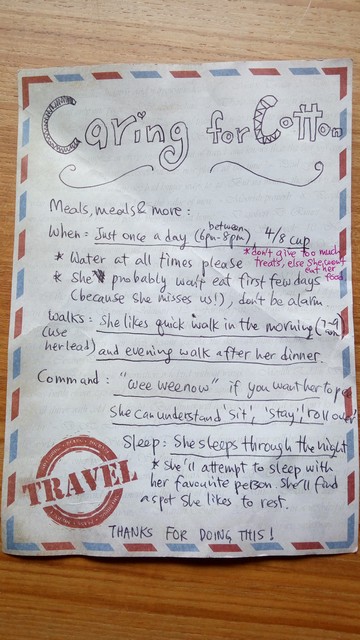 Caring for Cotton
Meals, meals & more :
When : Just once a day (between 6pm-8pm) 4/8 cup
* Water at all times please
* don't give too much
treats, else she won't
eat her food
* She probably won't eat first few days
(because she misses us!), don't be alarm.
Walks : She likes quick walk in the morning (7-9 am)
(use her lead) and evening walk after her dinner.
Command : "wee wee now" if you want her to pee
She can understand 'sit', 'stay', 'roll over'
Sleep : She sleeps through the night
* She'll attempt to sleep with
her favourite person. She'll find
a spot she likes to rest.
TRAVEL
THANKS FOR DOING THIS !